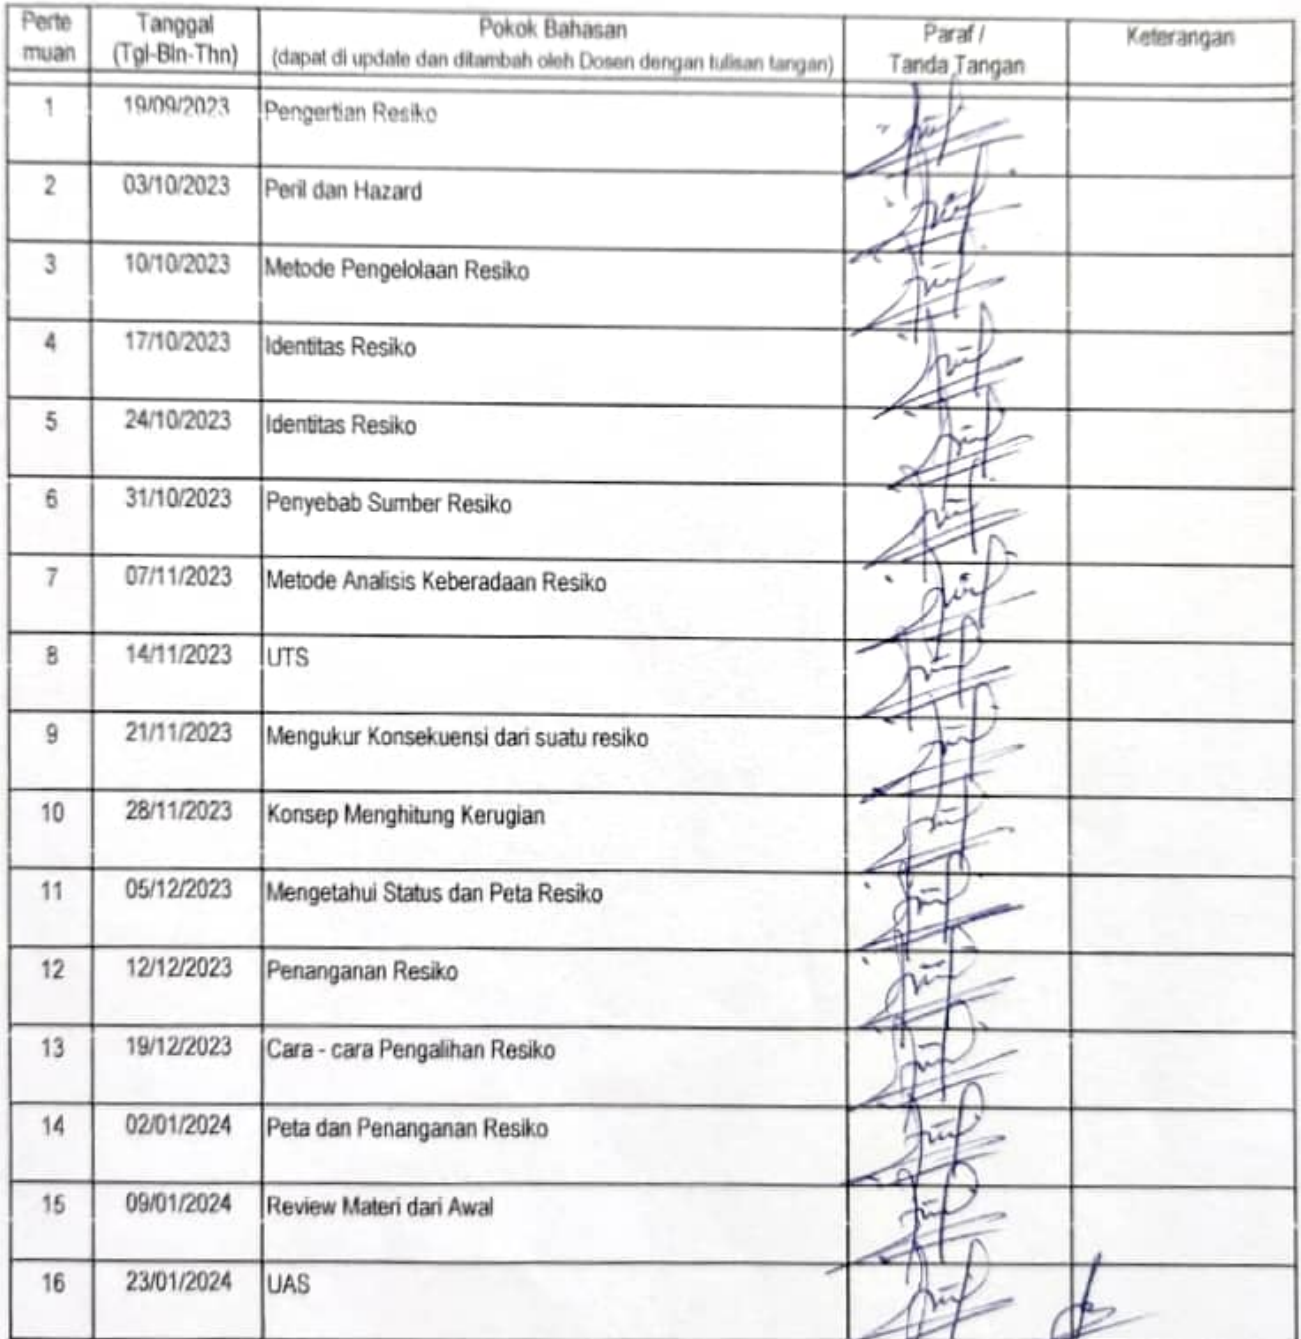 Perte muan Tanggal (Tgl-Bln-Thn) Pokok Bahasan (dapat di update dan ditambah oleh Dosen dengan tulisan tangan) Paraf / Tanda Tangan Keterangan
1 19/09/2023 Pengertian Resiko
2 03/10/2023 Peril dan Hazard
3 10/10/2023 Metode Pengelolaan Resiko
4 17/10/2023 Identitas Resiko
5 24/10/2023 Identitas Resiko
6 31/10/2023 Penyebab Sumber Resiko
7 07/11/2023 Metode Analisis Keberadaan Resiko
8 14/11/2023 UTS
9 21/11/2023 Mengukur Konsekuensi dari suatu resiko
10 28/11/2023 Konsep Menghitung Kerugian
11 05/12/2023 Mengetahui Status dan Peta Resiko
12 12/12/2023 Penanganan Resiko
13 19/12/2023 Cara - cara Pengalihan Resiko
14 02/01/2024 Peta dan Penanganan Resiko
15 09/01/2024 Review Materi dari Awal
16 23/01/2024 UAS